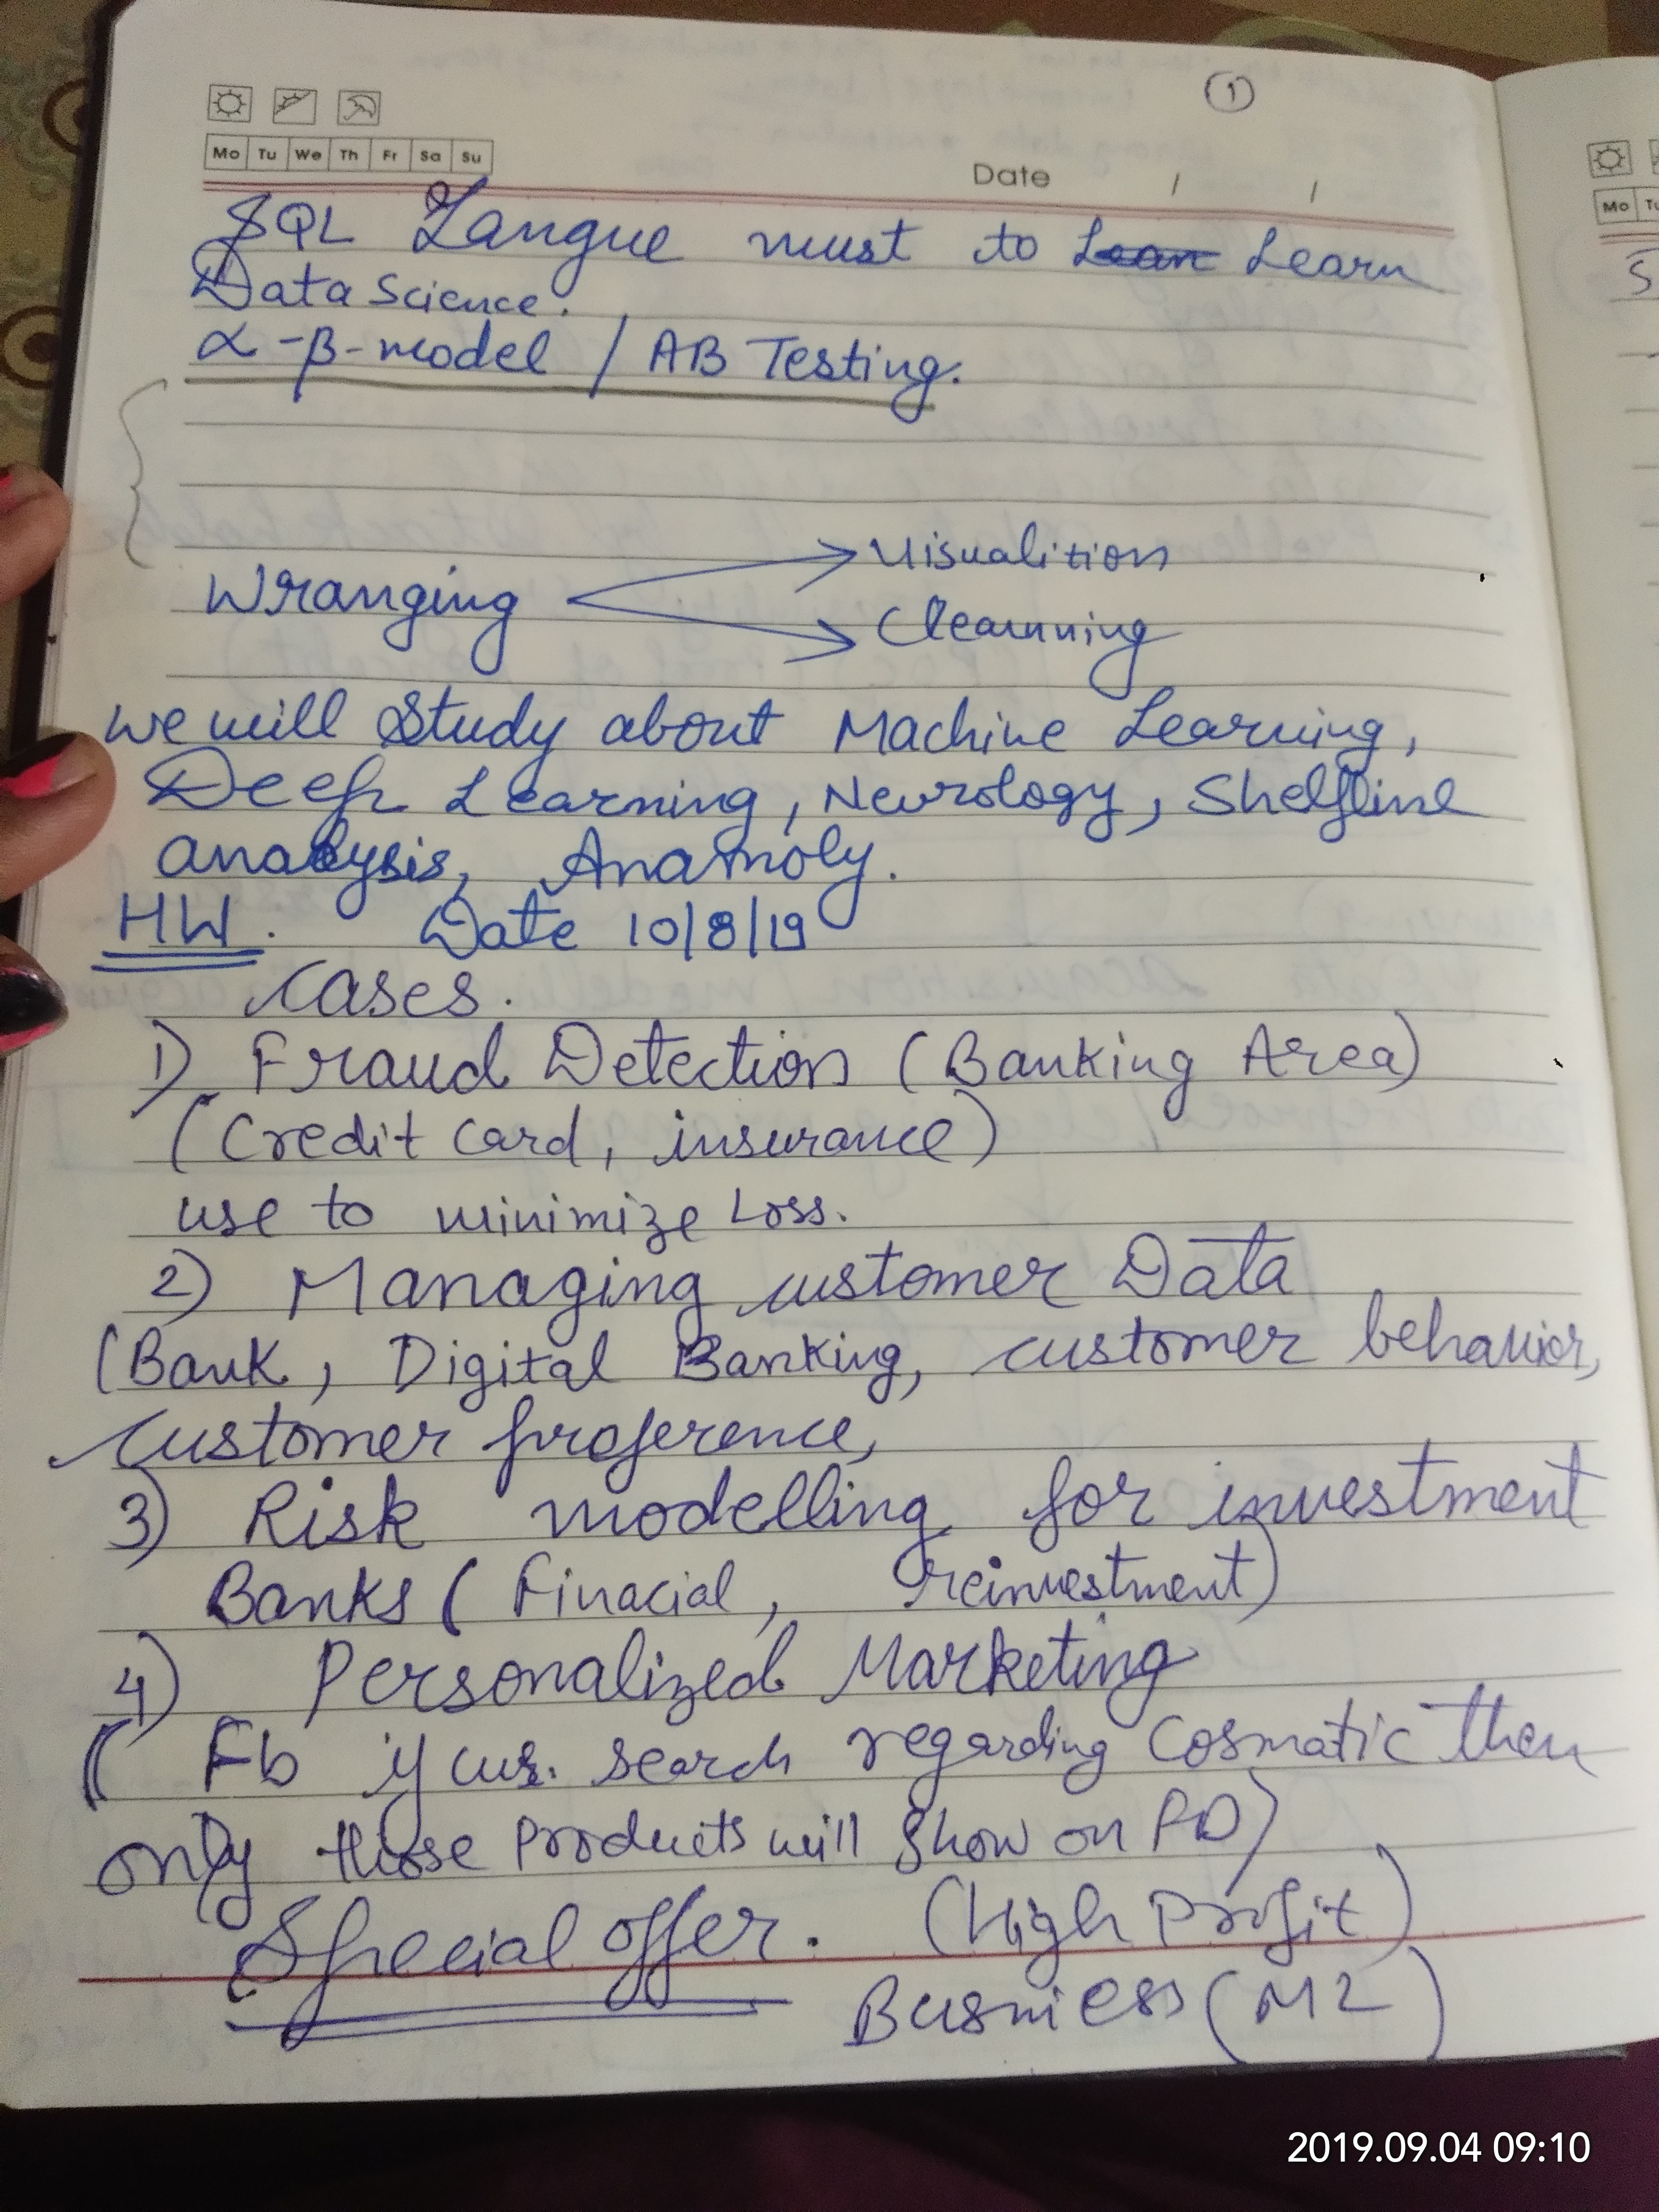 ①
Mo Tu We Th Fr Sa Su
Date / /
Mo Tu
S
SQL Langue must to Lean Learn
Data Science.
α-β-model / AB Testing.
Visualition
Wranging
Clearnning
we will Study about Machine Learning,
Deep Learning, Neurology, Shelfline
analysis, Anamoly.
HW. Date 10/8/19
Cases.
1) Fraud Detection (Banking Area)
(Credit Card, insurance)
use to minimize Loss.
2) Managing customer Data
(Bank, Digital Banking, customer behavior,
customer proference,
3) Risk modelling for investment
Banks ( Finacial, reinvestment)
4) Personalized Marketing
( Fb if cus. search regarding Cosmatic then
only those Products will show on PD)
Special offer. (High Profit)
Busniess (M2)
2019.09.04 09:10